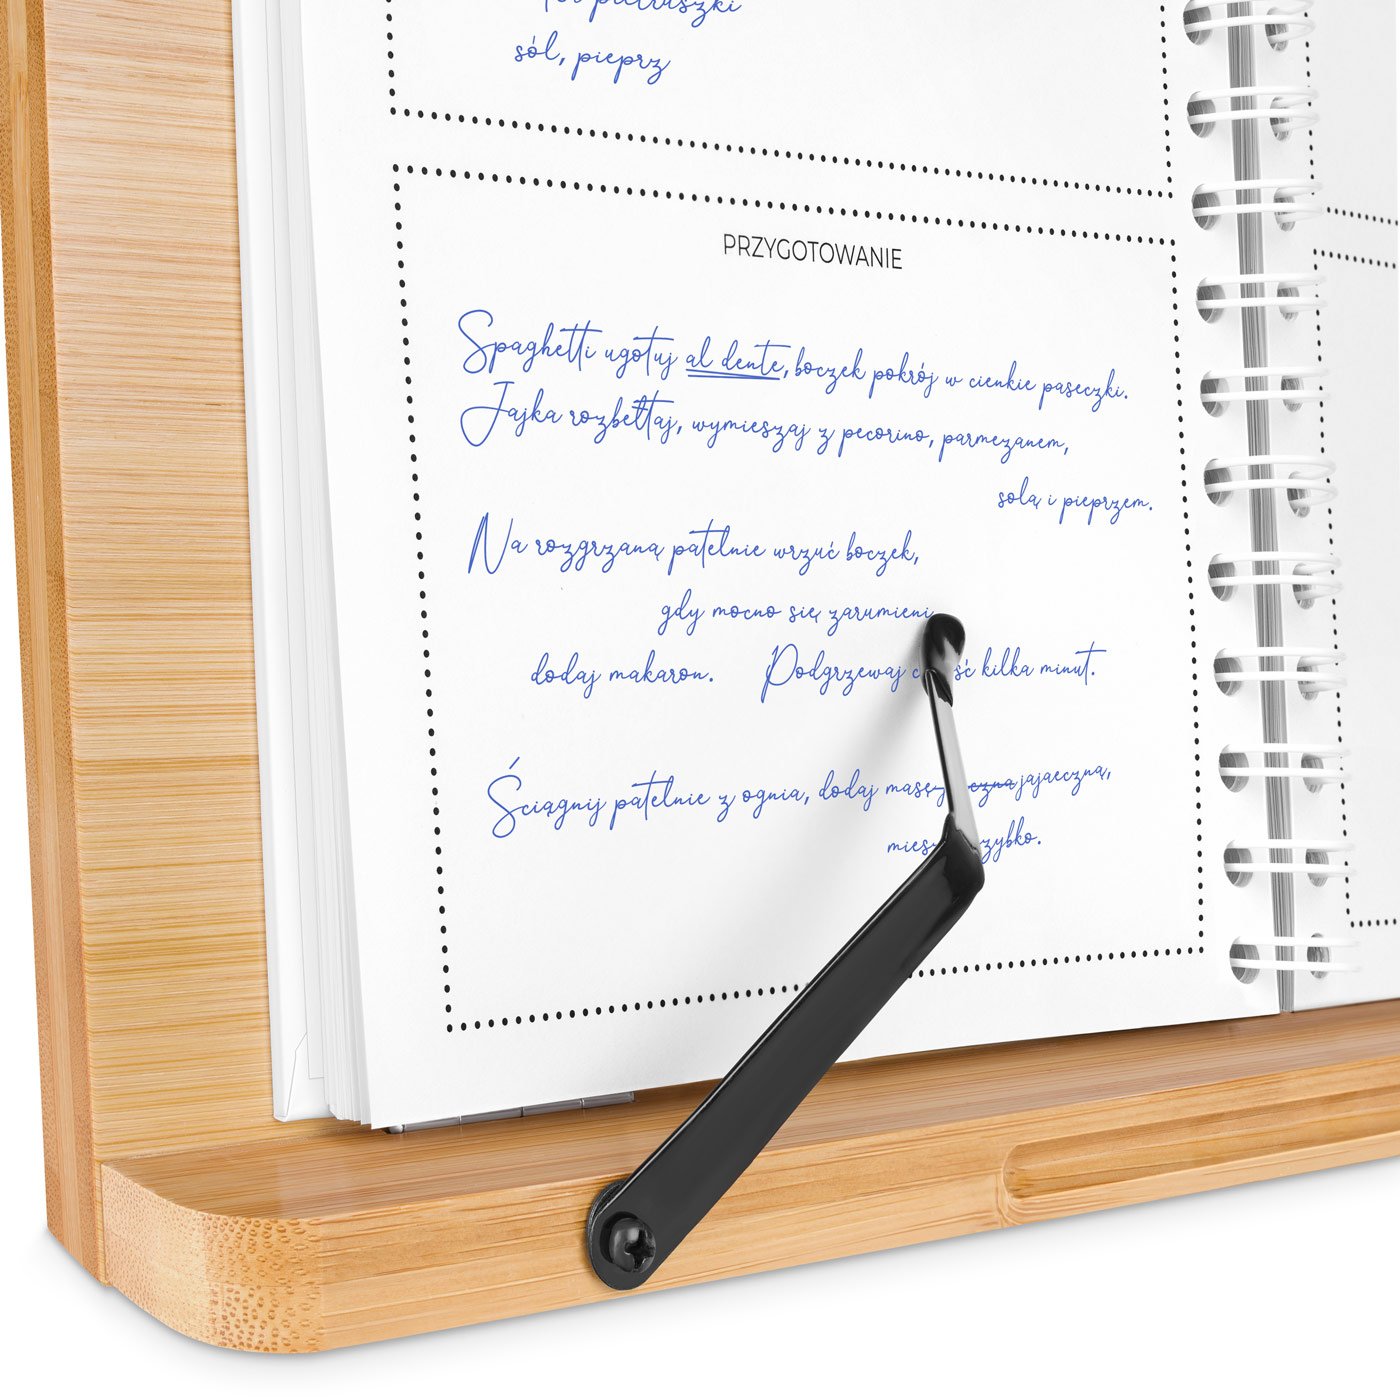 pietruszki
sól, pieprz
PRZYGOTOWANIE
Spaghetti ugotuj al dente, boczek pokrój w cienkie paseczki.
Jajka rozbełtaj, wymieszaj z pecorino, parmezanem,
solą i pieprzem.
Na rozgrzaną patelnie wrzuć boczek,
gdy mocno się zarumieni
dodaj makaron. Podgrzewaj kilka minut.
Ściągnij patelnie z ognia, dodaj jajaeczną,